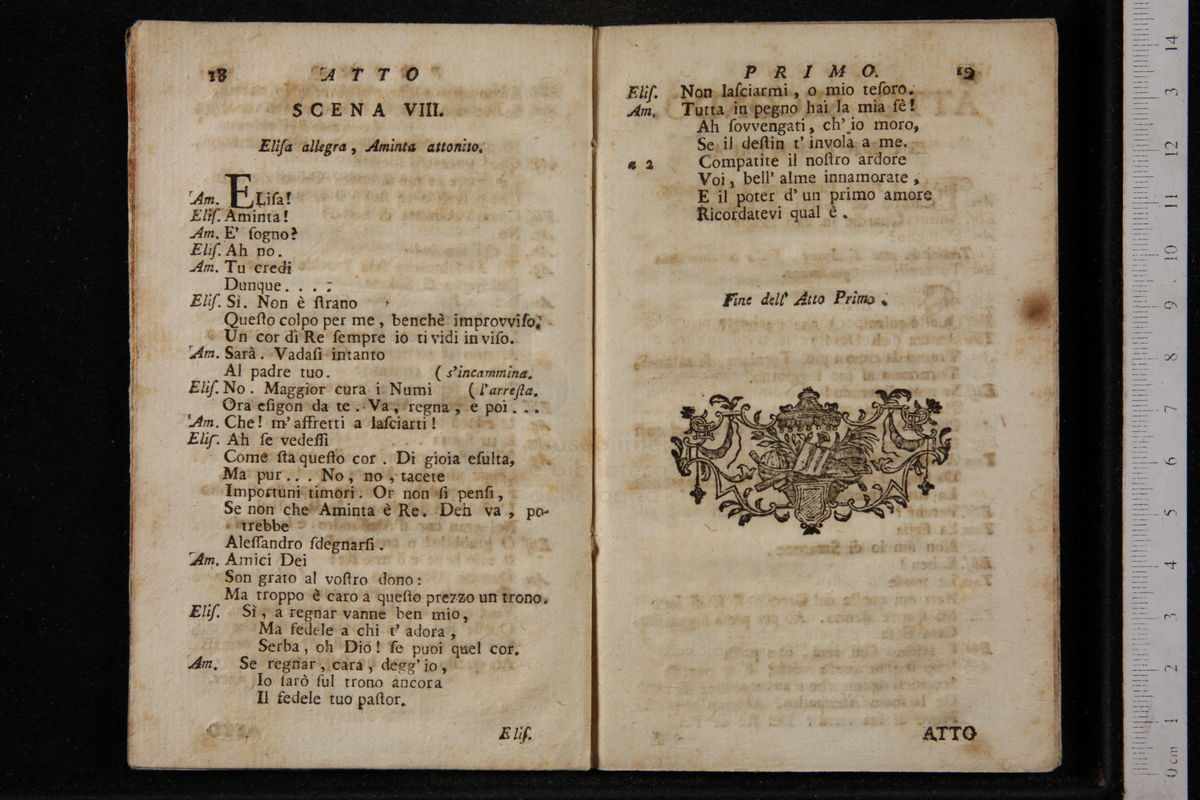 18 ATTO
SCENA VIII.
Eliſa allegra, Aminta attonito.
Am. ELiſa!
Eliſ. Aminta!
Am. E' ſogno?
Eliſ. Ah no.
Am. Tu credi
Dunque....
Eliſ. Sì. Non è ſtrano
Queſto colpo per me, benchè improvviſo.
Un cor di Re ſempre io ti vidi in viſo.
Am. Sarà. Vadaſi intanto
Al padre tuo. (s'incammina.
Eliſ. No. Maggior cura i Numi (l'arreſta.
Ora eſigon da te. Va, regna, e poi...
Am. Che! m'affretti a laſciarti!
Eliſ. Ah ſe vedeſſi
Come ſta queſto cor. Di gioia eſulta,
Ma pur... No, no, tacete
Importuni timori. Or non ſi penſi,
Se non che Aminta è Re. Deh va, po-
trebbe
Aleſſandro ſdegnarſi.
Am. Amici Dei
Son grato al voſtro dono:
Ma troppo è caro a queſto prezzo un trono.
Eliſ. Sì, a regnar vanne ben mio,
Ma fedele a chi t'adora,
Serba, oh Dio! ſe puoi quel cor.
Am. Se regnar, cara, degg'io,
Io ſarò ſul trono ancora
Il fedele tuo paſtor.
Eliſ.
PRIMO. 19
Eliſ. Non laſciarmi, o mio teſoro.
Am. Tutta in pegno hai la mia fè!
Ah ſovvengati, ch'io moro,
Se il deſtin t'invola a me.
a 2 Compatite il noſtro ardore
Voi, bell'alme innamorate,
E il poter d'un primo amore
Ricordatevi qual è.
Fine dell' Atto Primo.
ATTO
0 cm 1 2 3 4 5 6 7 8 9 10 11 12 13 14